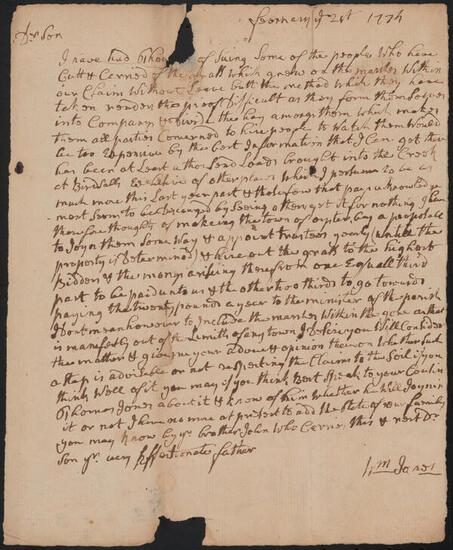 Febuary ye 21st 1774
Dr Son
I have had thou of Suing Some of the people Who have
Cutt & Carried of the Grass which grew on the marshes Within
our Claim Without Leave butt the method which they have
taken renders the proof Difficult as they form themSelves
into Company & Divide the hay among them Which makes
them all parties Concerned to hire people to Watch them Would
be too Expensive by the best Information that I Can get there
has been at Least a thousand Loads brought into the Creek
at Birdsalls Exclusive of other places Which I presume to be
much more this Last year part & those few that pays
most Seem to be Discouraged by Seeing others get it for nothing I have
therefore thoughts of making the town of oyster bay a proposale
to Joyn them Some Way & appoint trustees yearly (untill the
property is Determined) & hire out the grass to the highest
Bidder & the money arising therefrom one Equall third
part to be paid unto us & the other two thirds to go towards
paying the twenty pounds a year to the minister of the parish
I Dont mean however to Include the marshes Within the as that
is manifestly out of the Limits of any town I Desire you Will Consider
the matter & give me your advice & opinion thereon Whether Such
a Step is adviseable or not respecting the Claims to the Soil if you
think Well of it you may if you think best Speak to your Cousin
Thomas Jones about it & know of him Whether he Will Joyn in
it or not I have no more at present to add the State of our family
you may know by yr brother John Who Carries this & next Dr
Son yr very Affectionate father
Wm Jones